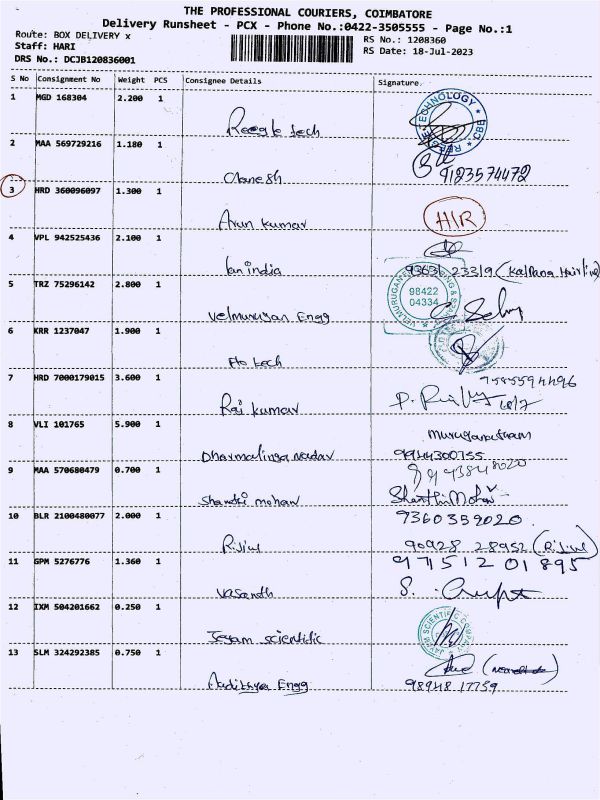 THE PROFESSIONAL COURIERS, COIMBATORE
Delivery Runsheet - PCX - Phone No.:0422-3505555 - Page No.:1
Route: BOX DELIVERY x
RS No.: 1208360
Staff: HARI
RS Date: 18-Jul-2023
DRS No.: DCJB120836001
S No Consignment No Weight PCS Consignee Details Signature
1 MGD 168304 2.200 1
TECHNOLOGY CBE
2 MAA 569729216 1.180 1
9123574472
3 HRD 360096097 1.300 1
Arun kumar HIR
4 VPL 942525436 2.100 1
Ion india 93631 23319 (Kalpana Hairline)
5 TRZ 75296142 2.800 1
98422
04334
Velmurugan Engg
6 KRR 1237047 1.900 1
Flo tech
7 HRD 7000179015 3.600 1
7585594496
Raj kumar 18/7
8 VLI 101765 5.900 1
Dharmalinga nadar 9944300755
9 MAA 570680479 0.700 1
Shanthi mohan Shanthi Mohan
10 BLR 2100480077 2.000 1
9360359020
90928 28952
11 GPM 5276776 1.360 1
9751201895
Vasanth
12 IXM 504201662 0.250 1
Jeyam scientific JAYAM SCIENTIFIC COMPANY
13 SLM 324292385 0.750 1
Aadithya Engg 98948 17759